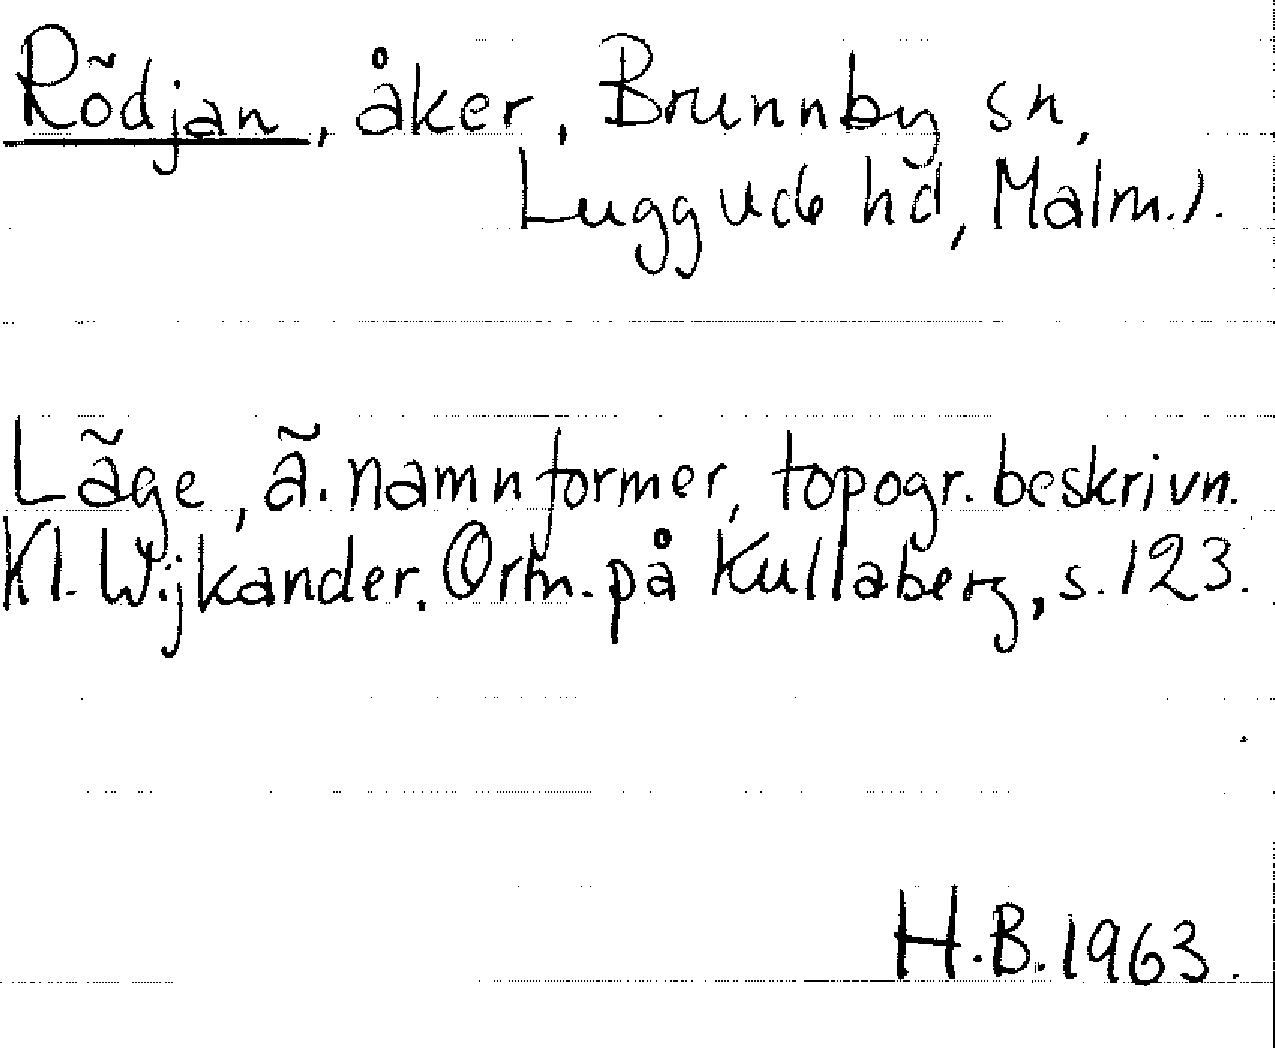 Rödjan, åker, Brunnby sn,
Luggude hd, Malm.l.
Läge, ä. namnformer, topogr. beskrivn.
Kl. Wijkander. Ortn. på Kullaberg, s. 123.
H.B. 1963.